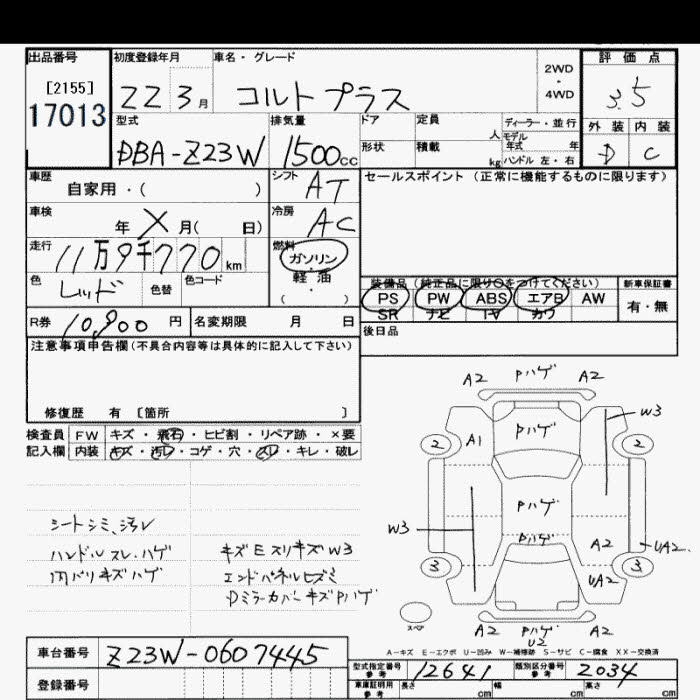 出品番号
[2155]
17013
初度登録年月
22 3月
車名・グレード
コルトプラス
2WD
・
4WD
評価点
3.5
外装 内装
D C
型式
DBA-Z23W
排気量
1500cc
ドア
形状
定員
人
積載
kg
ディーラー・並行
モデル
年式 年
ハンドル 左・右
車歴
自家用・( )
シフト
AT
セールスポイント(正常に機能するものに限ります)
車検
年 X 月( 日)
冷房
AC
走行
11万9千770km
燃料
ガソリン
・
軽油
・
( )
色
レッド
色替
色コード
装備品(純正品に限り〇をつけてください)
PS PW ABS エアB AW
SR ナビ TV カワ
新車保証書
有・無
R券 10,900円
名変期限 月 日
後日品
注意事項申告欄(不具合内容等は具体的に記入して下さい)
修復歴 有 〔箇所 〕
検査員
記入欄
FW キズ・飛石・ヒビ割・リペア跡・×要
内装 キズ・汚レ・コゲ・穴・スレ・キレ・破レ
シートシミ、汚レ
ハンドルスレ、ハゲ
内バリキズハゲ
キズEスリキズW3
エンドパネルヒズミ
DミラーカバーキズPハゲ
A2 Pハゲ A2
W3
2 A1 Pハゲ 2
W3 Pハゲ
Pハゲ A2 UA2
3 UA2 3
スペア
A2 Pハゲ A2
U2
A-キズ E-エクボ U-凹み W-補修跡 S-サビ C-腐食 XX-交換済
車台番号 Z23W-0607445
登録番号
型式指定番号
参考
12641
類別区分番号
参考
2034
車庫証明用
参考
長さ cm
幅 cm
高さ cm